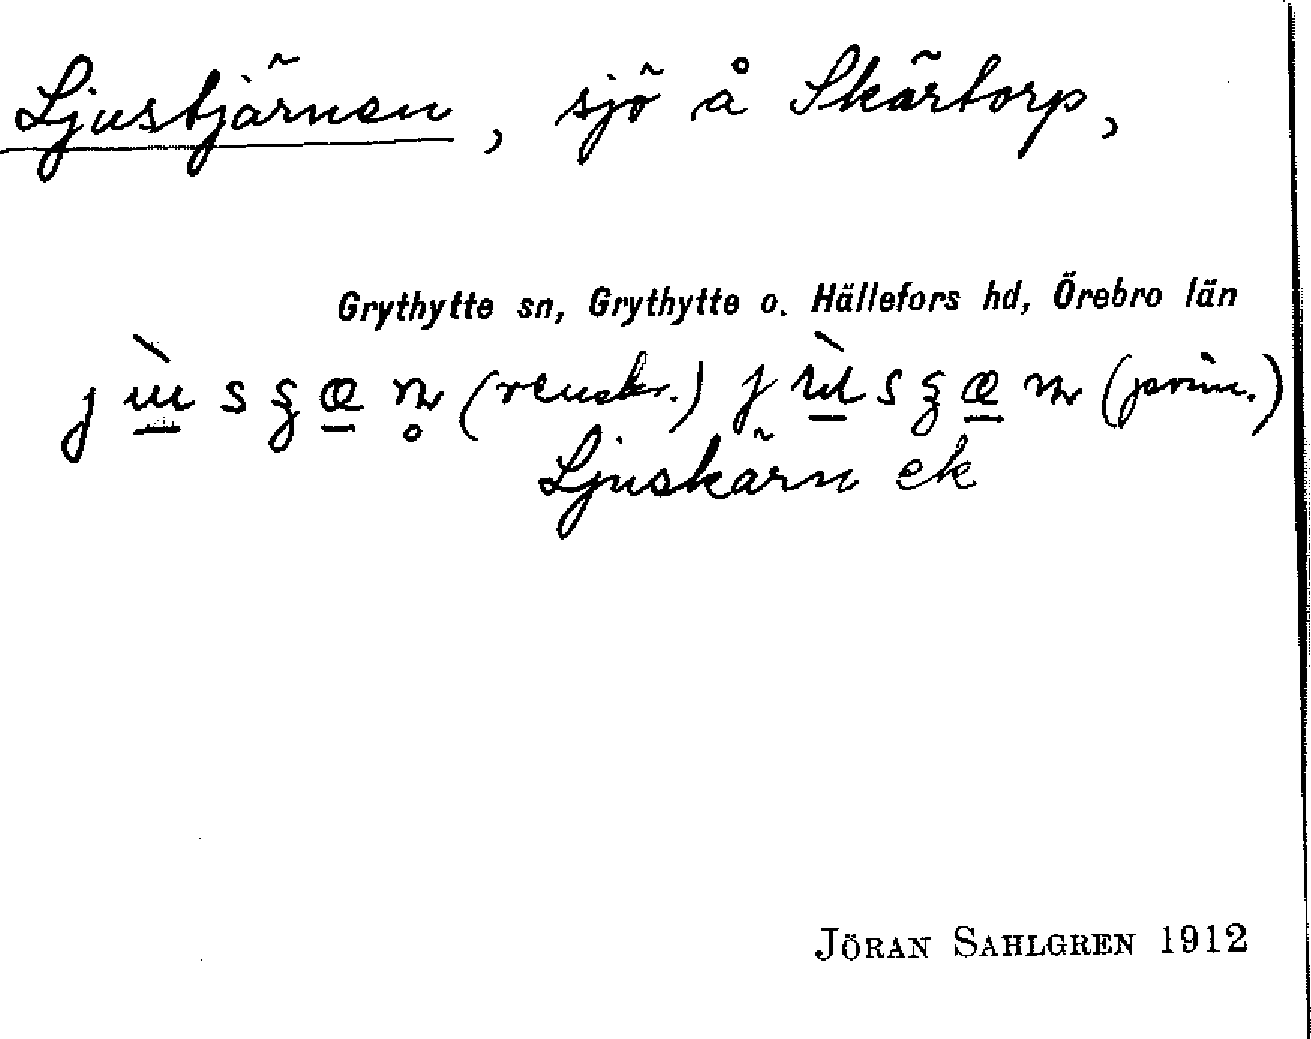 Ljustjärnen, sjö å Skärtorp,
Grythytte sn, Grythytte o. Hällefors hd, Örebro län
(renskr.) (prim.)
Ljuskärn ek
JÖRAN SAHLGREN 1912